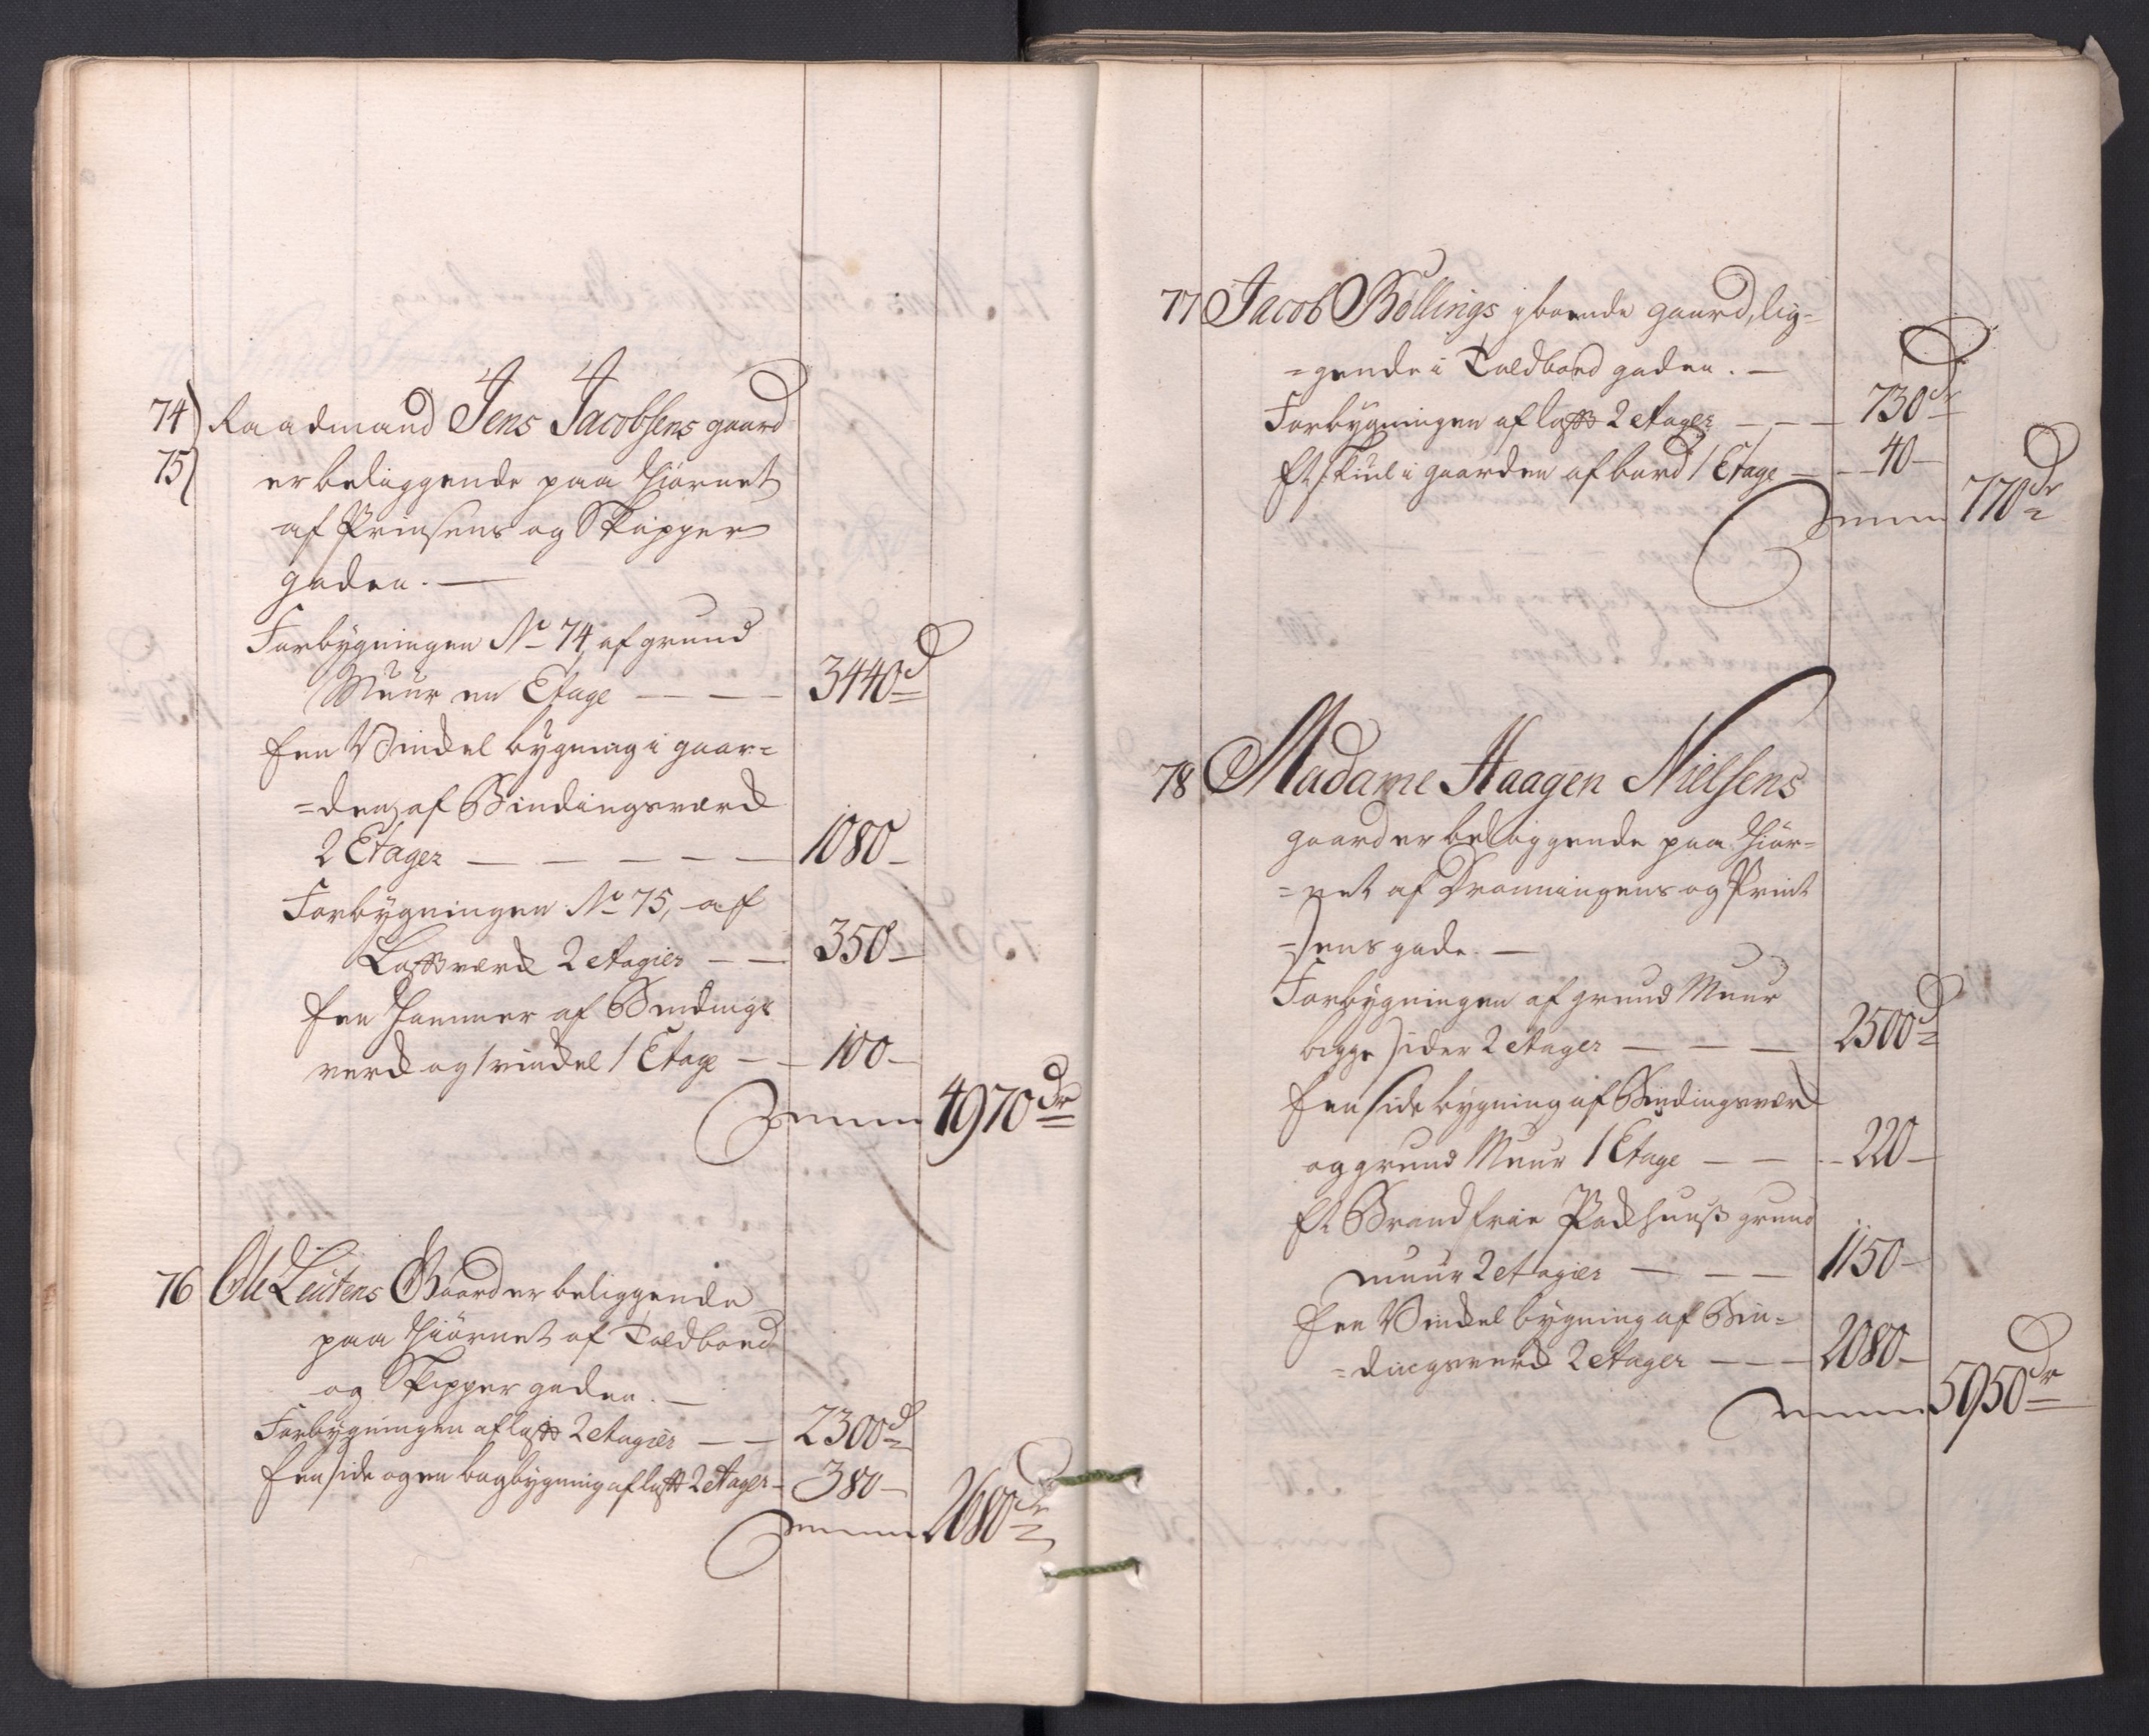 74) Raadmand Jens Jacobsens gaard
75) er beliggende paa Hiörnet
af Prinsens og Skipper
gaden. —
Forbygningen No 74, af grund
Muur en Etage — — — 3440 d
Een Vindel bygning i gaar=
=den, af Bindingsværck
2 Etager — — — — — 1080 —
Forbygningen No 75, af
Lafft værck 2 etagier — — 350 —
Een Hammer af Bindings
verck og svindel 1 Etage — — 100 —
Summa 4970 dr
76 Ole Leutens Gaard er beliggende
paa Hiörnet af Toldboed
og Skipper gaden. —
Forbygningen af lafft 2 etagier — — 2300 d
Een side og en bagbygning af lafft 2 etager — 380 —
Summa 2680 dr
77 Jacob Böllings iboende gaard, lig=
=gende i Toldboed gaden. —
Forbygningen af lafft 2 etager — — — 730 dr
Et skiul i gaarden af bord 1 Etage — — 40 —
Summa 770 dr
78 Madame Haagen Nielsens
gaard er beliggende paa Hiör=
=net af Dronningens og Print
=sens gade. —
Forbygningen af grund Muur
begge sider 2 etager — — — 2500 d
Een side bygning af Bindingsværck
og grund Muur 1 Etage — — — 220 —
Et Brand frie Packhuuss grund
muur 2 etagier — — — 1150 —
Een Vindel bygning af Bin=
=dingsverck 2 etager — — — 2080 —
Summa 5950 dr